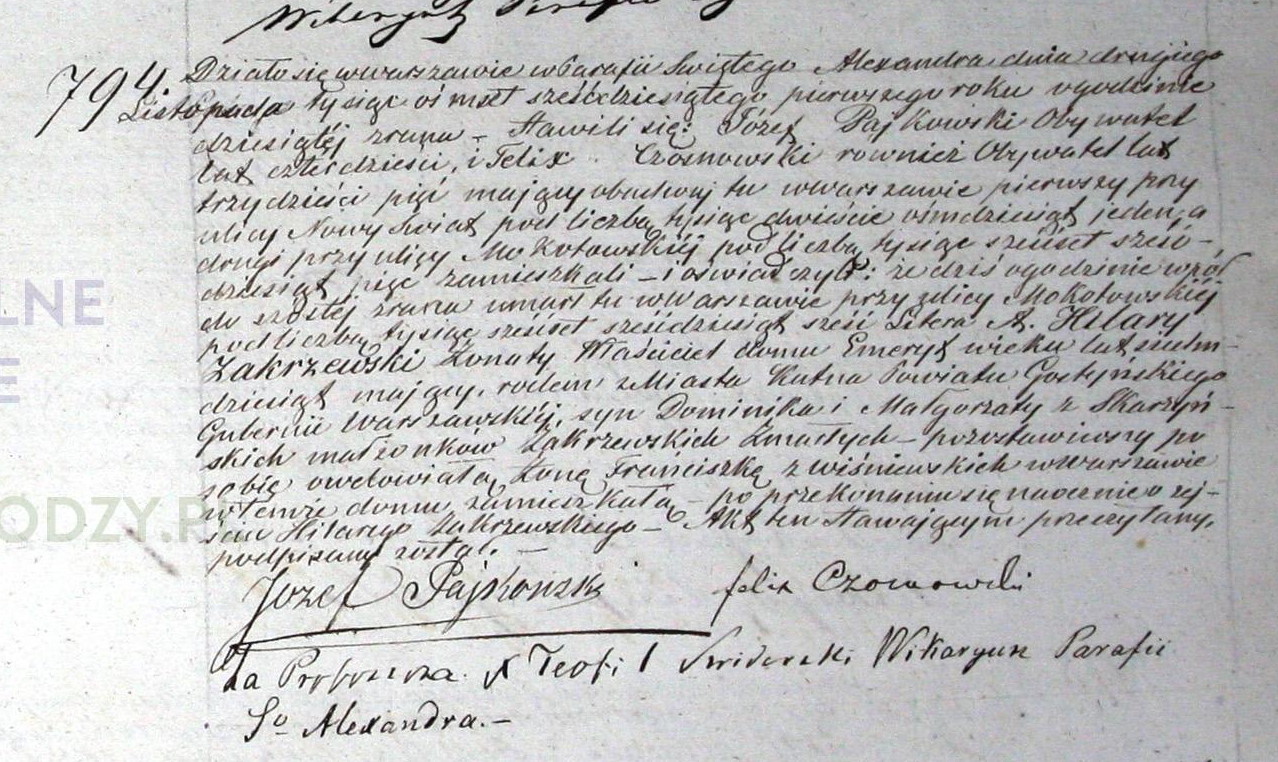 Wikaryusz Parafii
794. Działo się w Warszawie w Parafii Swiętego Alexandra dnia drugiego
Listopada tysiąc ośmset sześćdziesiątego pierwszego roku o godzinie
dziesiątéj zrana – Stawili się: Józef Pajkowski Obywatel
lat czterdzieści, i Felix Czosnowski rownież Obywatel lat
trzydzieści pięć mający obadwaj tu w Warszawie pierwszy przy
ulicy Nowy Swiat pod liczbą tysiąc dwieście ośmdziesiąt jeden, a
drugi przy ulicy Mokotowskiéj pod liczbą tysiąc sześćset sześć–
dziesiąt pięć zamieszkali – i oświadczyli: że dziś o godzinie wpół
do szóstéj zrana umarł tu w Warszawie przy ulicy Mokotowskiéj
pod liczbą tysiąc sześćset sześćdziesiąt sześć Litera A. Hilary
Zakrzewski Żonaty Właściciel domu Emeryt wieku lat siedm–
dziesiąt mający, rodem z Miasta Kutna Powiatu Gostynskiego
Gubernii Warszawskiéj, syn Dominika i Małgorzaty z Skarzyń–
skich małżonków Zakrzewskich Zmarłych – pozostawiwszy po
sobie owdowiałą Żonę Franciszkę z Wiśniewskich w Warszawie
w temże domu zamieszkałą – po przekonaniu się naocznie o zej–
ściu Hilarego Zakrzewskiego – Akt ten stawającym przeczytany,
podpisany został. –
Jozef Pajkowski felix Czosnowski
Za Proboszcza X Teofil Swiderski Wikaryusz Parafii
So Alexandra. –
LNE
E
ODZY.PL